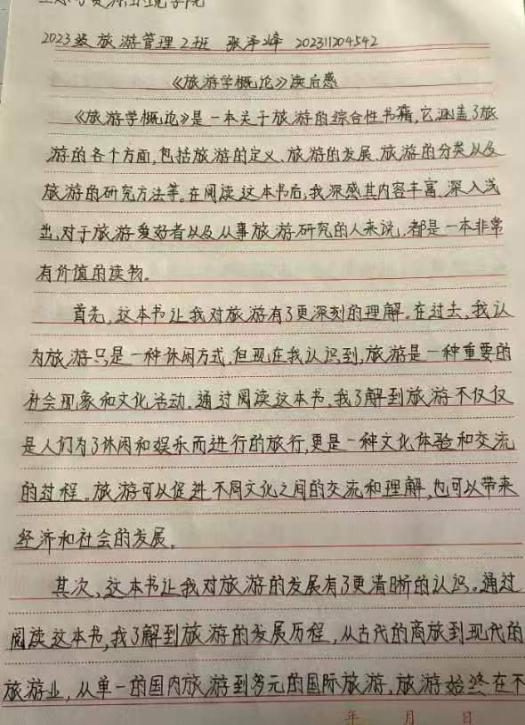 2023级旅游管理2班 张泽峰 202311204542
《旅游学概论》读后感
《旅游学概论》是一本关于旅游的综合性书籍,它涵盖了旅
游的各个方面,包括旅游的定义、旅游的发展、旅游的分类以及
旅游的研究方法等。在阅读这本书后,我深感其内容丰富、深入浅
出,对于旅游爱好者以及从事旅游研究的人来说,都是一本非常
有价值的读物。
首先,这本书让我对旅游有了更深刻的理解。在过去,我认
为旅游只是一种休闲方式,但现在我认识到,旅游是一种重要的
社会现象和文化活动。通过阅读这本书,我了解到旅游不仅仅
是人们为了休闲和娱乐而进行的旅行,更是一种文化体验和交流
的过程。旅游可以促进不同文化之间的交流和理解,也可以带来
经济和社会的发展。
其次,这本书让我对旅游的发展有了更清晰的认识。通过
阅读这本书,我了解到旅游的发展历程,从古代的商旅到现代的
旅游业,从单一的国内旅游到多元的国际旅游,旅游始终在不
年 月 日